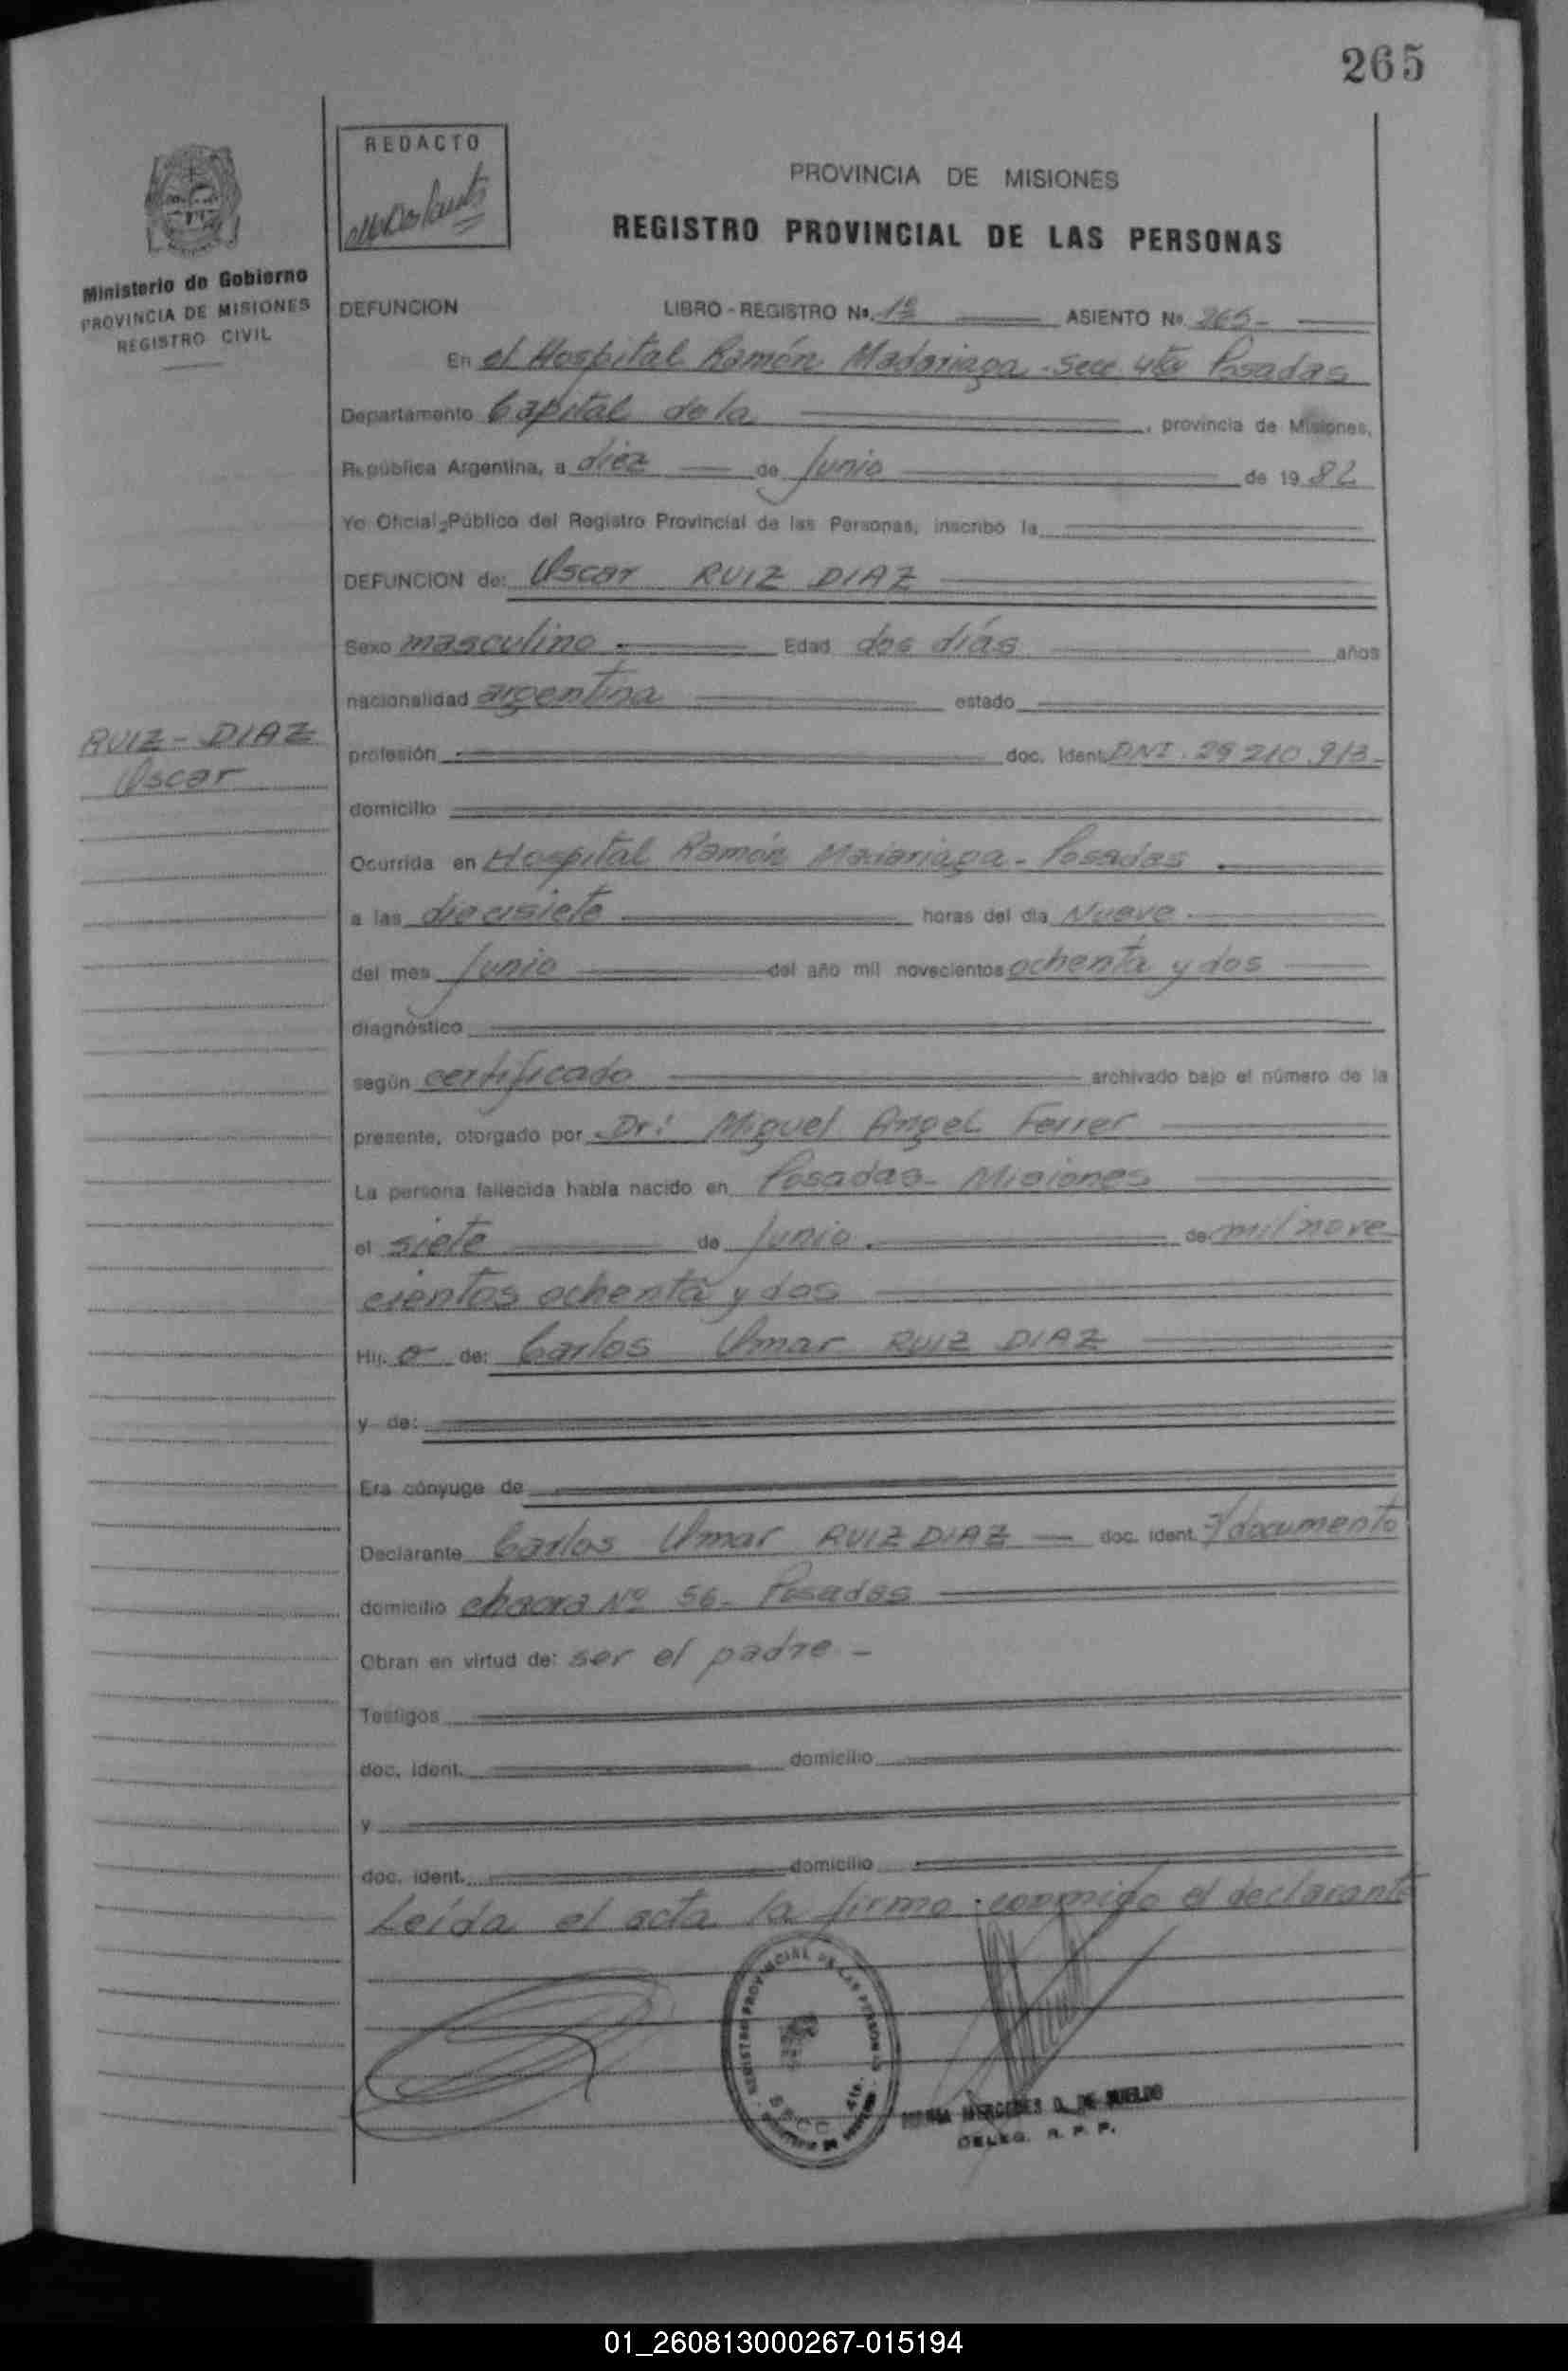 265
REDACTO
PROVINCIA DE MISIONES
REGISTRO PROVINCIAL DE LAS PERSONAS
Ministerio de Gobierno
PROVINCIA DE MISIONES
REGISTRO CIVIL
DEFUNCION LIBRO - REGISTRO No. 12 ASIENTO No 265-
En el Hospital Ramón Madariaga - Secc 4ta Posadas
Departamento Capital de la , provincia de Misiones,
República Argentina, a diez de Junio de 1982
Yo Oficial Público del Registro Provincial de las Personas, inscribo la
DEFUNCION de: Oscar RUIZ DIAZ
Sexo masculino Edad dos días años
nacionalidad argentina estado
RUIZ - DIAZ
Oscar
profesión doc. Ident. DNI. 29 210 913-
domicilio
Ocurrida en Hospital Ramón Madariaga - Posadas
a las diecisiete horas del día Nueve
del mes Junio del año mil novecientos ochenta y dos
diagnóstico
según certificado archivado bajo el número de la
presente, otorgado por Dr: Miguel Angel Ferrer
La persona fallecida había nacido en Posadas - Misiones
el siete de Junio de mil nove
cientos ochenta y dos
Hij o de: Carlos Omar RUIZ DIAZ
y de:
Era cónyuge de
Declarante Carlos Omar RUIZ DIAZ doc. ident. documento
domicilio chacra Nº 56 - Posadas
Obran en virtud de: ser el padre -
Testigos
doc. ident. domicilio
y
doc. ident. domicilio
Leída el acta la firma conmigo el declarante
REGISTRO PROVINCIAL DE LAS PERSONAS
SECC. 4ta.
MERCEDES D. DE SUELDO
DELEG. R. P. P.
01_260813000267-015194